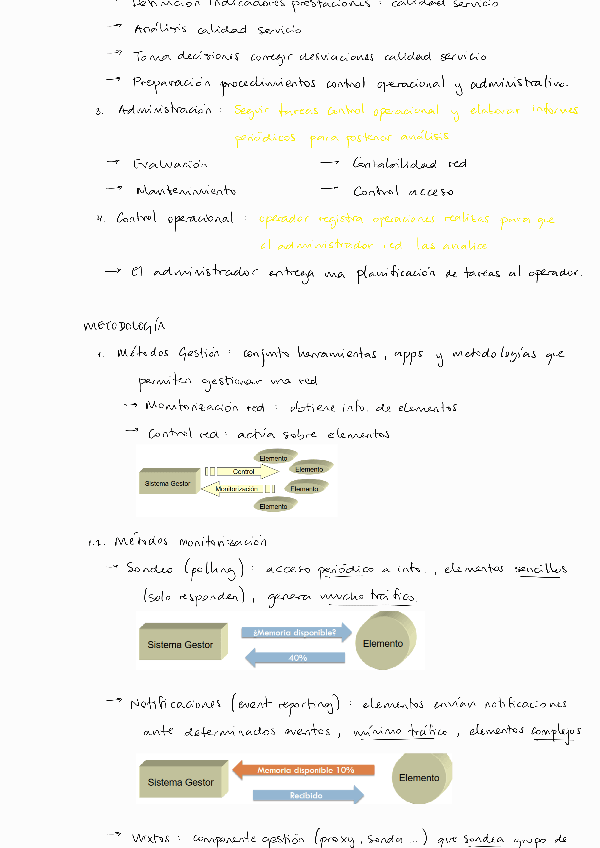 → Definición indicadores prestaciones : calidad servicio
→ Análisis calidad servicio
→ Toma decisiones corregir desviaciones calidad servicio
→ Preparación procedimientos control operacional y administrativo.
3. Administración : Seguir tareas control operacional y elaborar informes
periódicos para posterior análisis
→ Evaluación → Contabilidad red
→ Mantenimiento → Control acceso
4. Control operacional : operador registra operaciones realizas para que
el administrador red las analice
→ El administrador entrega una planificación de tareas al operador.
METODOLOGÍA
1. Métodos Gestión : conjunto herramientas, apps y metodologías que
permiten gestionar una red
→ Monitorización red : obtiene info. de elementos
→ Control red : actúa sobre elementos
Elemento
Sistema Gestor Control Elemento
Monitorización Elemento
Elemento
1.1. Métodos monitorización
→ Sondeo (polling) : acceso periódico a info., elementos sencillos
(solo responden), genera mucho tráfico.
Sistema Gestor ¿Memoria disponible? Elemento
40%
→ Notificaciones (event reporting) : elementos envían notificaciones
ante determinados eventos, mínimo tráfico, elementos complejos
Sistema Gestor Memoria disponible 10% Elemento
Recibido
→ Mixtos : componente gestión (proxy, sonda ...) que sondea grupo de